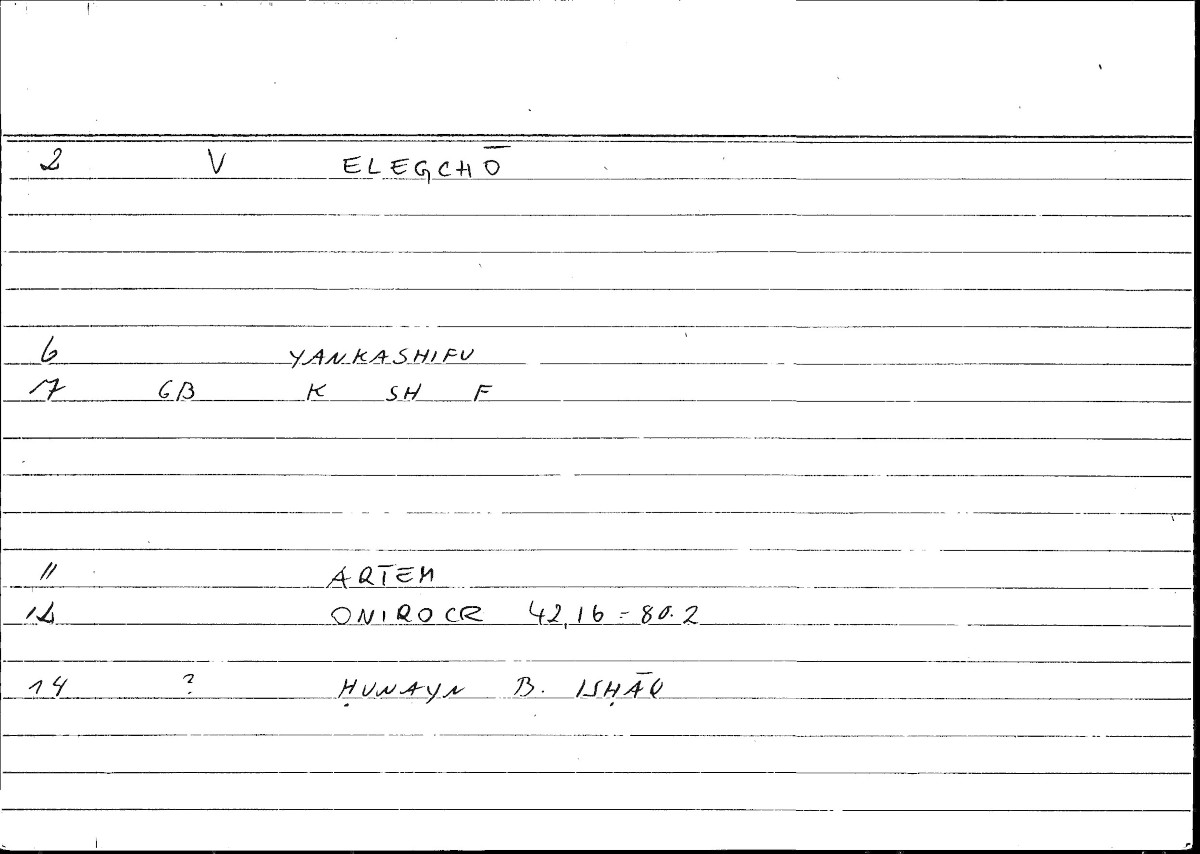 2 V ELEGCHŌ
6 YANKASHIFU
7 GB K SH F
11 ARTEM
12 ONIROCR 42,16 = 80.2
14 ? ḤUNAYN B. ISḤĀQ